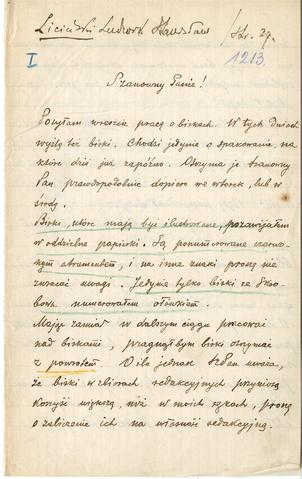 Liciński Ludwik Stanisław /str. 29.
I
1213.
Szanowny Panie!
Posyłam wreszcie pracę o biskach. W tych dniach
wyślę też biski. Chodzi jedynie o spakowanie, na
które dziś już zapóźno. Otrzyma je Szanowny
Pan prawdopodobnie dopiero we wtorek, lub w
środę.
Biski, które mają być ilustrowane, pozawijałem
w oddzielne papierki. Są ponumerowane czerwo-
nym atramentem, i na inne znaki proszę nie
zwracać uwagi. Jedynie tylko biski ze
numerowałem ołówkiem.
Mając zamiar w dalszym ciągu pracować
nad biskami, pragnąłbym biski otrzymać
z powrotem. O ile jednak Sz. Pan uważa,
że biski w zbiorach redakcyjnych przyniosą
korzyść większą, niż w moich rękach, proszę
o zaliczenie ich na własność redakcyjną.